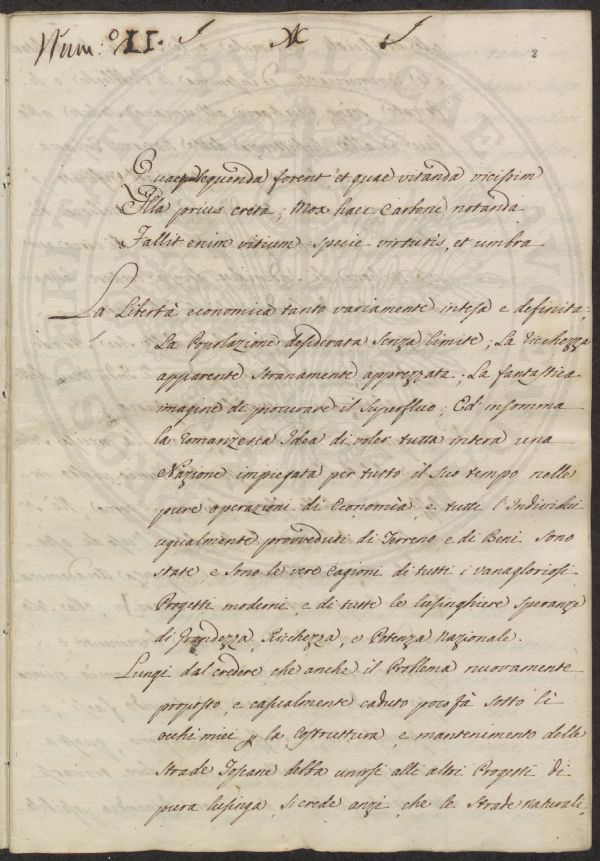 Num:o II.
2
Quae sequenda forent et quae vitanda vicissim
Illa prius creta; Mox haec Carbone notanda
Fallit enim vitium specie virtutis, et umbra
La Libertà economica tanto variamente intesa e definita;
La Popolazione desiderata senza limite; La Ricchezza
apparente stranamente apprezzata; La fantastica
imagine di procurare il superfluo; Ed insomma
la Romanzesca Idea di voler tutta intera una
Nazione impiegata per tutto il suo tempo nelle
pure operazioni di Economia, e tutti l'Individui
ugualmente provveduti di Terreno e di Beni sono
state, e sono le vere cagioni di tutti i vanagloriosi
Progetti moderni, e di tutte le lusinghiere speranze
di Grandezza, Ricchezza, e Potenza Nazionale.
Lungi dal credere, che anche il Problema nuovamente
proposto, e casualmente caduto poco fà sotto li
occhi miei p la Costruttura, e mantenimento delle
strade Tosane debba unirsi alli altri Progetti di
pura lusinga, si crede anzi, che le strade naturali,